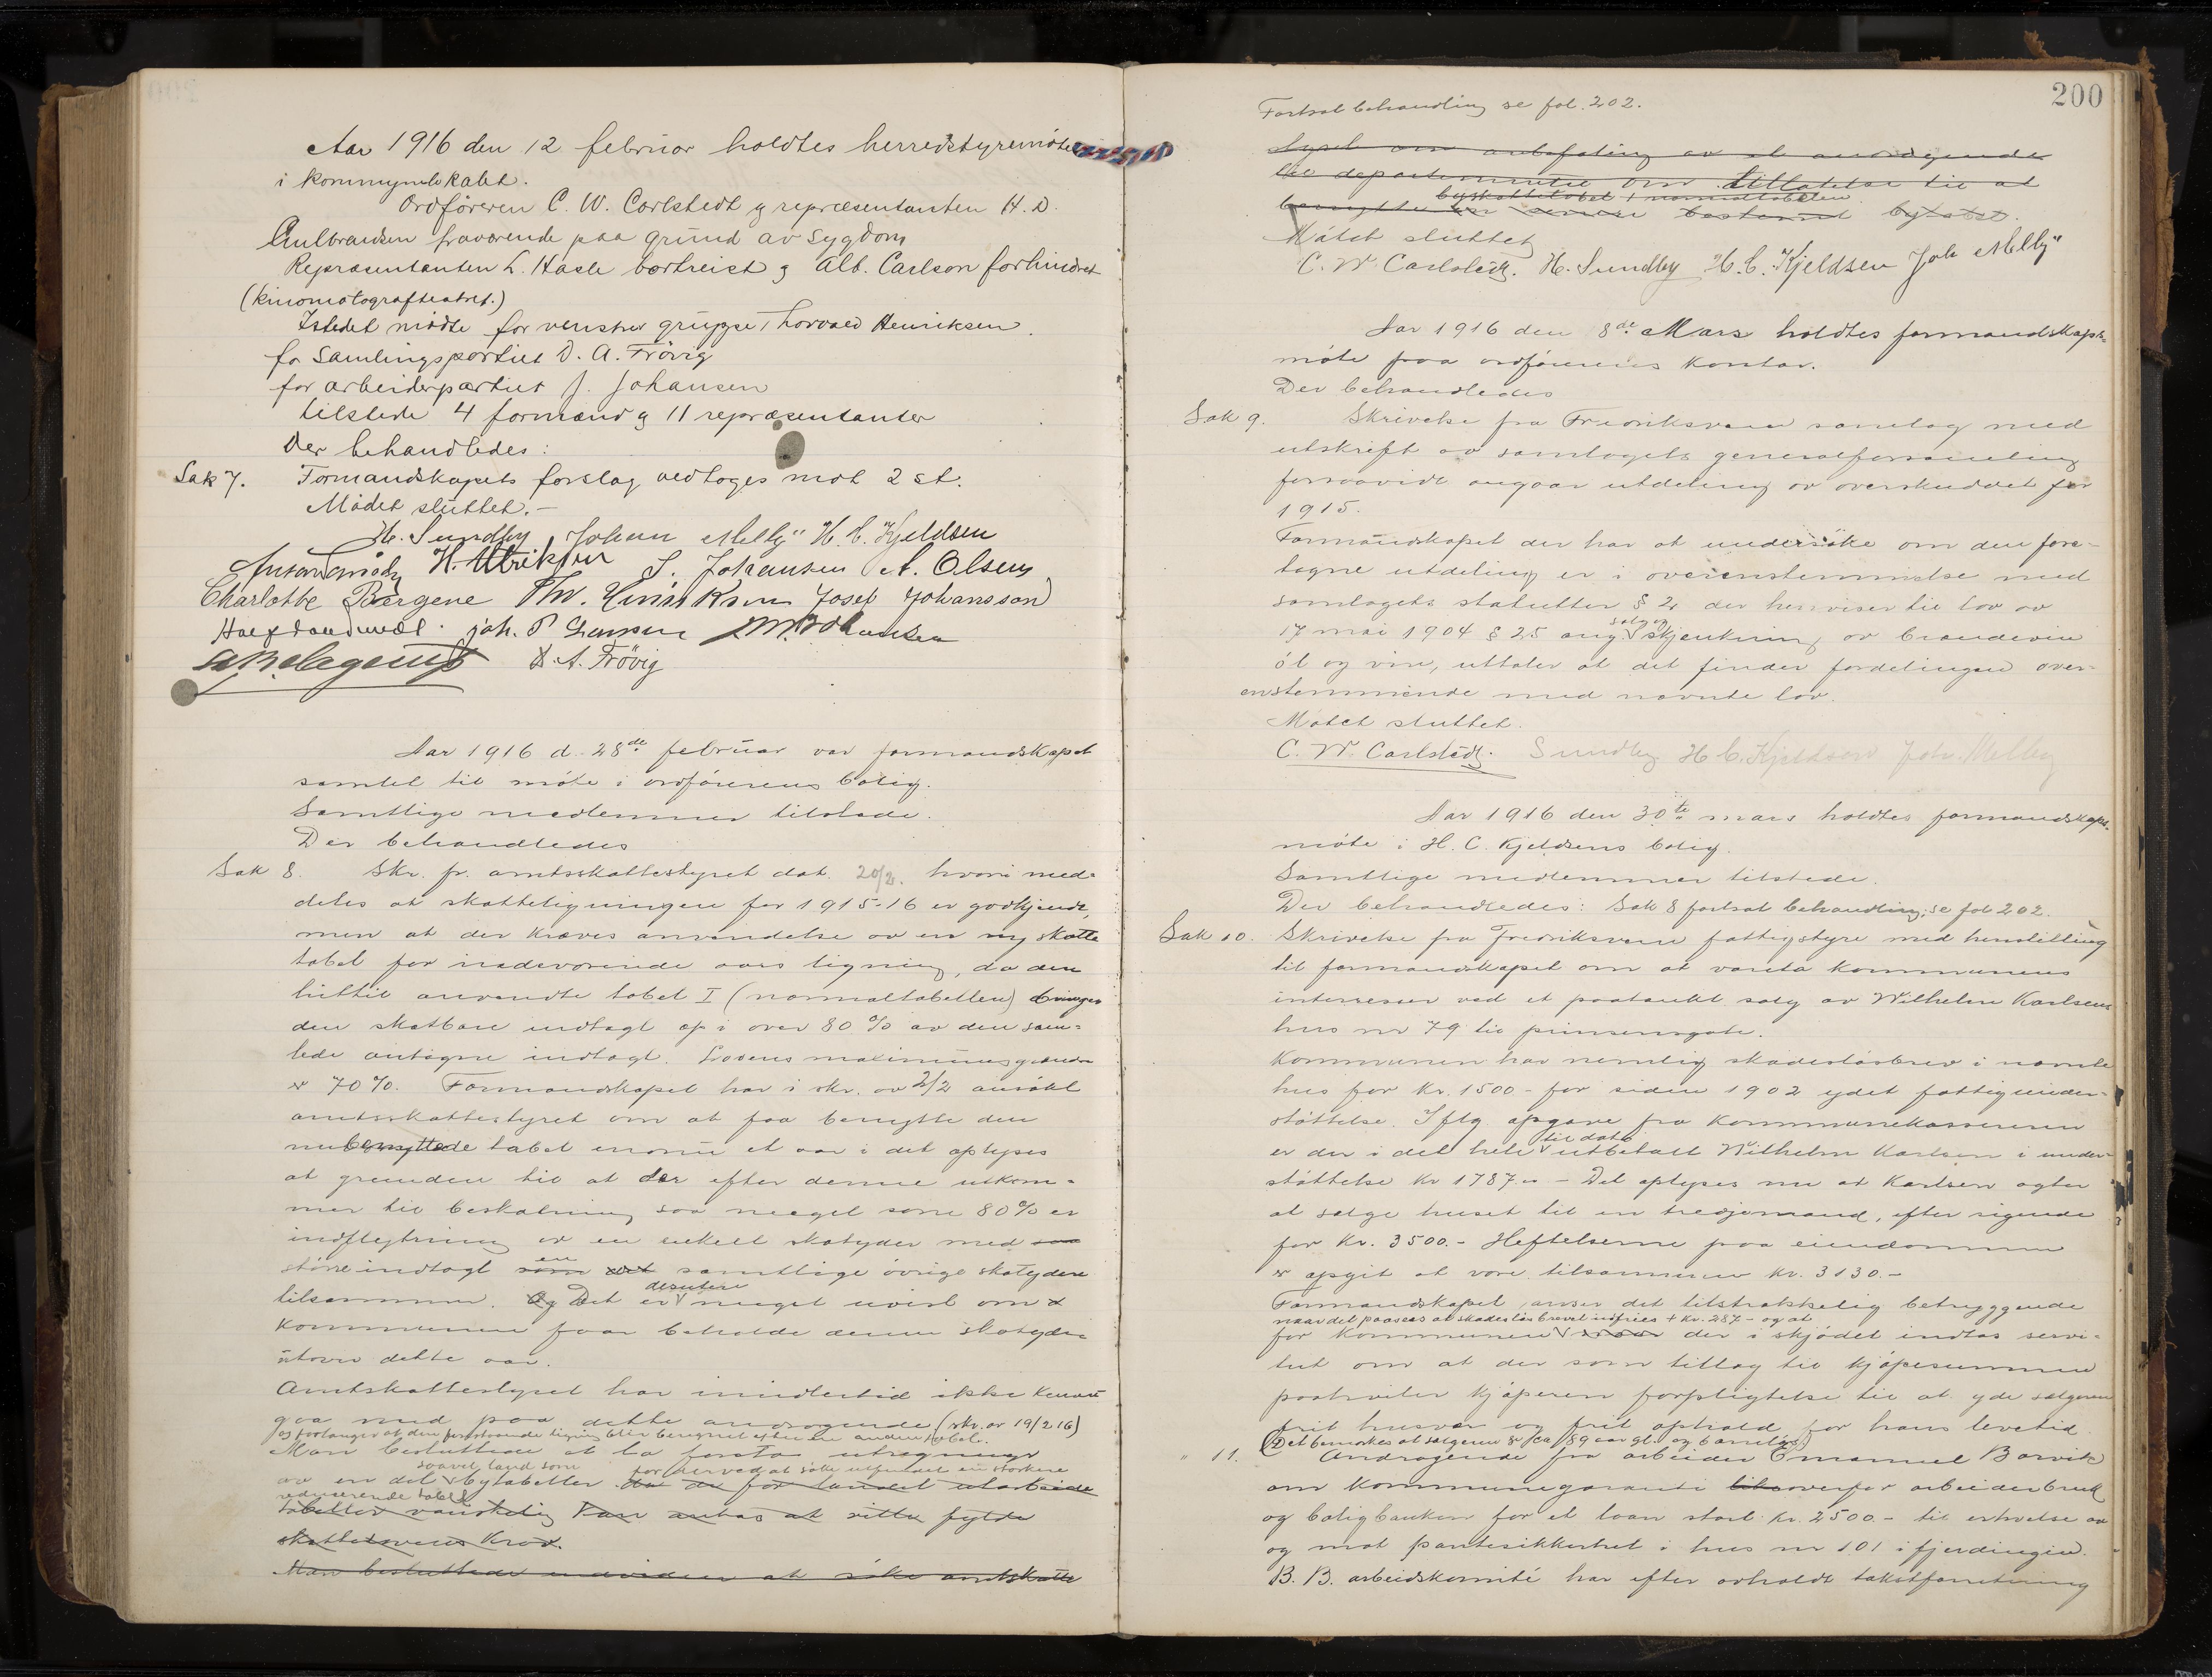 Aar 1916 den 12 februar holdtes herredstyremöte
i kommunelokalet.
Ordföreren C. W. Carlstedt og repræsentanten H. D.
Gulbrandsen fraværende paa grund av sygdom
Repræsentanten L. Hasle bortreist og Alb. Carlson forhindret
(kinomatografteatret.)
Istedet mödte for venstres gruppe Thorvald Henriksen.
for Samlingspartiet D. A. Frövig
for arbeiderpartiet J. Johansen
tilstede 4 formænd og 11 repræsentanter
Der behandledes:
Sak 7. Formandskapets forslag vedtoges mot 2 st.
Mödet sluttet.-
H. Sundby Johan Melby H. C. Kjeldsen
H. Ulriksen J. Johansen A. Olsen
Charlotte Bergene Thv. Henriksen Josef Johansson
Joh. P.
D. A. Frövig
Aar 1916 d. 28de februar var formandskapet
samlet til möte i ordförerens bolig.
Samtlige medlemmer tilstede.
Der behandledes
Sak 8. Skr. fr. amtsskattestyret dat. 20/2. hvori med-
deles at skatteligningen for 1915-16 er godkjendt,
men at der kræves anvendelse av en ny skatte
tabel for indeværende aars ligning, da den
hittil anvendte tabel I (normaltabellen) bringer
den skatbare indtægt op i over 80 % av den sam-
lede antagne indtægt. Lovens maximumsgrændse
er 70 %. Formandskapet har i skr. av 2/2 ansökt
amtsskattestyret om at faa benytte den
nubenyttede tabel ennu et aar i det oplyses
at grunden til at der efter denne utkom-
mer til beskatning saa meget som 80 % er
indflytning av en enkelt skatyder med saa
en
större indtægt som det samtlige övrige skatydere
desuten
tilsammen. Og Det er meget uvist om
kommunen faar beholde denne skatyder
utover dette aar.
Amtskattestyret har imidlertid ikke kunnet
gaa med paa dette andragende (skr. av 19/2 16)
og forlanger at den forestaaende ligning blir beregnet efter en anden tabel.
Man besluttede at la foreta utregninger
saavel land som for derved at söke utfundet en sterkere
av en del bytabeller da de for landet utarbeide
reducerende tabel
tabeller vanskelig kan antas at ville fylde
skattelovens krav.
Man besluttede endvidere at söke amtskatte
200
Fortsat behandling se fol. 202.
styret om anbefaling av et andragende
til departementet om tillatelse til at
byskattetabel I normaltabellen
benytte en senere bestemt bytabel.
Mötet sluttet
C. W. Carlstedt. H. Sundby H. C. Kjeldsen Joh Melby
Aar 1916 den 8de Mars holdtes formandskaps-
möte paa ordförerens kontor.
Der behandledes
Sak 9. Skrivelse fra Fredriksværn samlag med
utskrift av samlagets generalforsamling
forsaavidt angaar utdeling av overskuddet for
1915.
Formandskapet der har at undersöke om den fore-
tagne utdeling er i overenstemmelse med
samlagets statutter § 2 der henviser til lov av
salg og
17 mai 1904 § 25 ang. skjenkning av brændevin
öl og vin, uttaler at det finder fordelingen over-
enstemmende med nævnte lov.
Mötet sluttet.
C. W. Carlstedt. Sundby H. C. Kjeldsen Joh. Melby
Aar 1916 den 30te mars holdtes formandskaps-
möte i H. C. Kjeldsens bolig.
Samtlige medlemmer tilstede.
Der behandledes: Sak 8 fortsat behandling; se fol 202.
Sak 10. Skrivelse fra Fredriksværn fattigstyre med henstilling
til formandskapet om at vareta kommunens
interesser ved et paatænkt salg av Wilhelm Karlsens
hus nr 79 til prinsensgate.
Kommunen har nemlig skadeslösbrev i nævnte
hus for kr. 1500- for siden 1902 ydet fattigunder-
stöttelse. Iflg. opgave fra kommunekassereren
til dato
er der i det hele utbetalt Wilhelm Karlsen i under-
stöttelse kr 1787.- Det oplyses nu at Karlsen agter
at sælge huset til en tredjemand, efter sigende
for kr. 3500.- Heftelserne paa eiendommen
er opgit at være tilsammen kr. 3130.-
Formandskapet anser det tilstrækkelig betryggende
naar det paasees at skadeslösbrevet indfries + kr. 287- og at
for kommunen der i skjödet indtas servi-
tut om at der som tillæg til kjöpesummen
paahviler kjöperen forpligtelse til at yde sælgeren
frit husvær og frit ophold for hans levetid
(Det bemerkes at sælgeren er ca 89 aar gl. og barnlös.)
" 11. Andragende fra arbeider Emanuel Borvik
om kommunegaranti overfor arbeiderbruk
og boligbanken for et laan stort kr. 2500.- til erhvelse av
og mot pantesikkerhet i hus nr 101 i fjerdingen.
B. B. arbeidskomité har efter avholdt takstforretning